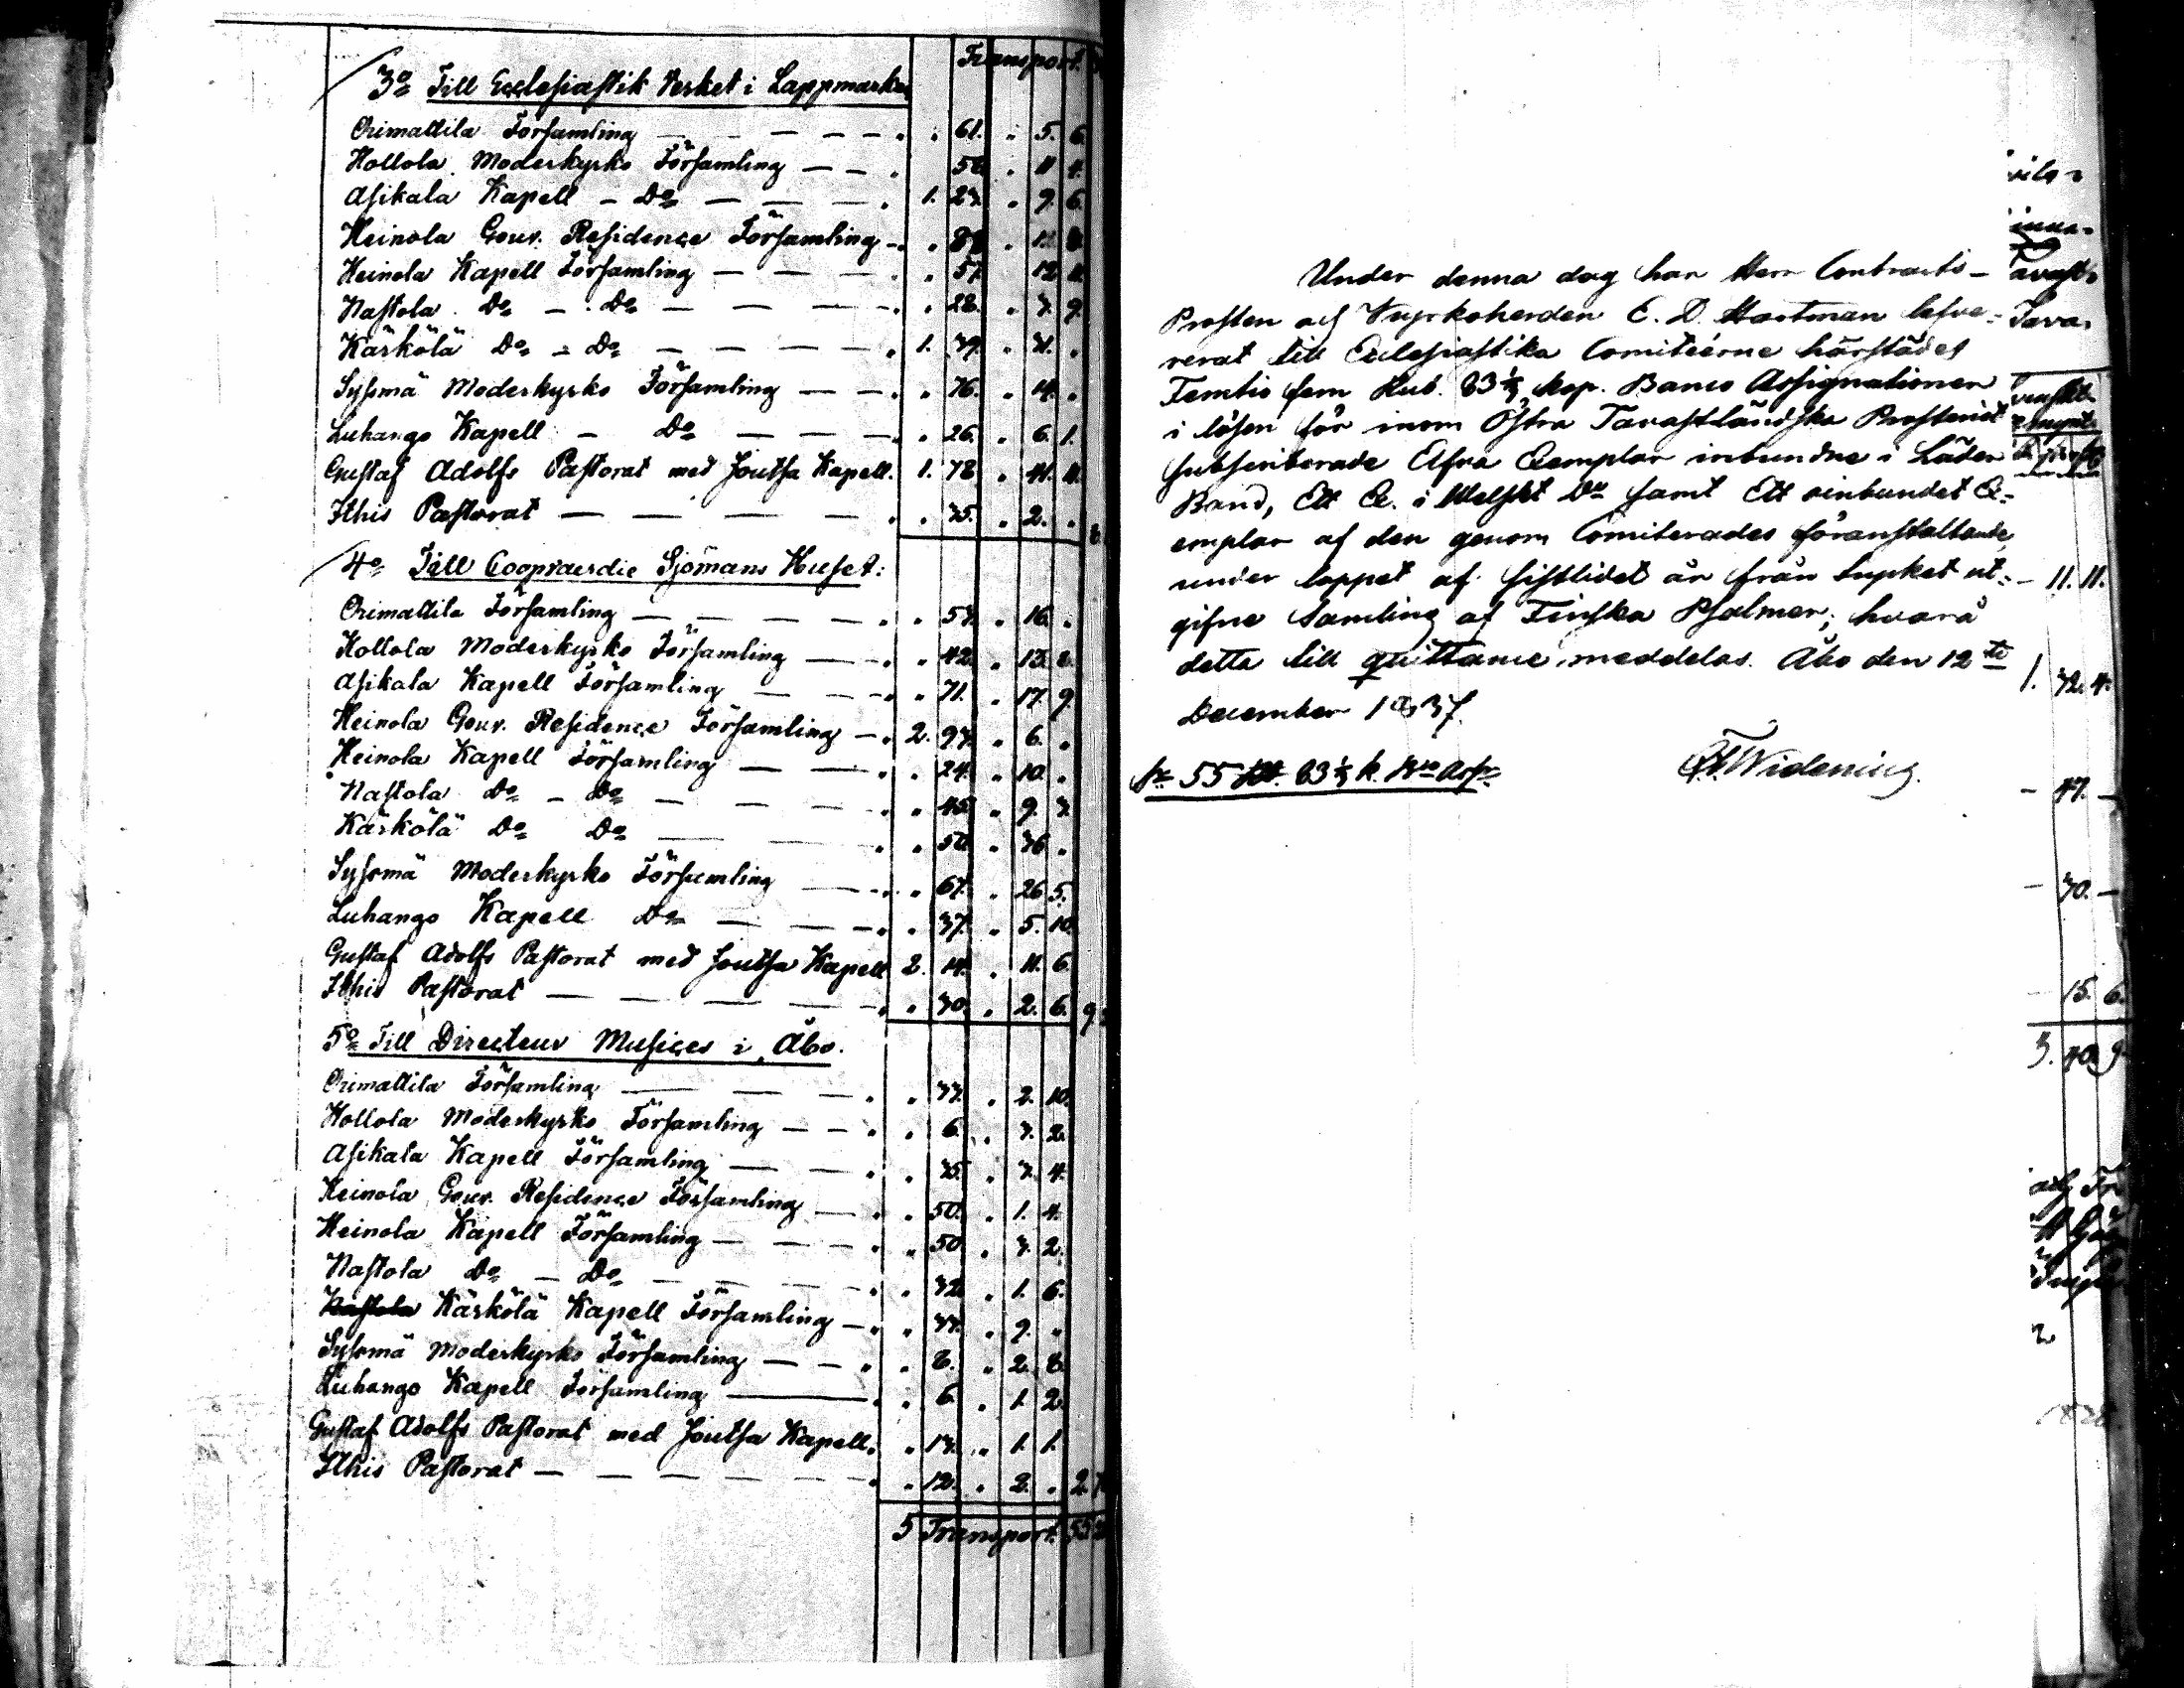 Transport.
3o Till Ecclesiastik Verket i Lappmarken
Orimattila Församling — — — — — " " 61. " 5. 6.
Hollola Moderkyrko Församling — — " 11 4.
Asikala Kapell — Do — — — " 1. 27. " 9. 6.
Heinola Gouv. Residence Församling — "
Heinola Kapell Församling — — — " " 57. 12
Nastola Do — Do — — — — " " 28. " 7. 9.
Kärkölä Do — Do — — — — " 1. 39. " 31. "
Syssmä Moderkyrko Församling — — " " 76. " 14. "
Luhango Kapell — Do — — — " " 26. " 6. 1.
Gustaf Adolfs Pastorat med Joutsa Kapell. 1. 78. " 41. 11.
Ithis Pastorat — — — — " " 35. " 2. "
4o Till Coopvaerdie Sjömans Huset:
Orimattila Församling — — — — " " 57. " 16. "
Hollola Moderkyrko Församling — " " 42. " 13. 8.
Asikala Kapell Församling — — " " 71. " 17. 9.
Heinola Gouv. Residence Församling — " 2. 97. " 6. "
Heinola Kapell Församling — — " " 24. " 10. "
Nastola Do — Do — — — " " 45. " 9. 7.
Kärkölä Do Do — — " " 50. " 36 "
Syssmä Moderkyrko Församling — " " 67. " 26 5.
Luhango Kapell Do — — — " " 37. " 5. 10.
Gustaf Adolfs Pastorat med Joutsa Kapell 2. 14. " 11. 6.
Ithis Pastorat — — — — — " " 30. " 2. 6.
5o Till Directeur Musices i Åbo.
Orimattila Församling — — — " " 33. " 2. 10.
Hollola Moderkyrko Församling — — " " 6. " 3. 2.
Asikala Kapell Församling — — " " 35. " 3. 4.
Heinola Gouv. Residence Församling — " " 50. " 1. 4.
Heinola Kapell Församling — — — " " 50. " 3. 2.
Nastola Do — Do — — — — " " 32. " 1. 6.
Nastola Kärkölä Kapell Församling — " " 33. " 9. "
Syssmä Moderkyrko Församling — — " " 8. " 2. 8.
Luhango Kapell Församling — " " 6. " 1. 2.
Gustaf Adolfs Pastorat med Joutsa Kapell. " " 13. " 1. 1.
Ithis Pastorat — — — — — — " " 12. " 2. "
5 Transport. 55
Under denna dag har Herr Contracts-
Prosten och Kyrkoherden C. D. Hartman lefve-
rerat till Ecclesiastika Comitéerne härstädes
Femtio fem Rub. 83 1/3 kop. Banco Assignationer
i lösen för inom Östra Tavastländska Prosteriet
subscriberade Elfva Exemplar inbundne i Läder
Band, Ett Ex. i Welskt Do samt Ett oinbundet Ex-
emplar af den genom Comiterades föranstaltande
under loppet af sistlidet år från trycket ut-
gifne Samling af Finska Psalmer; hvarå
detta till quittance meddelas. Åbo den 12te
December 1837.
55 83 1/3 k. Bco Assn
Widening.
11. 11.
1. 72. 4.
— 47. —
— 30. —
— 15. 6.
3. 40. 9.